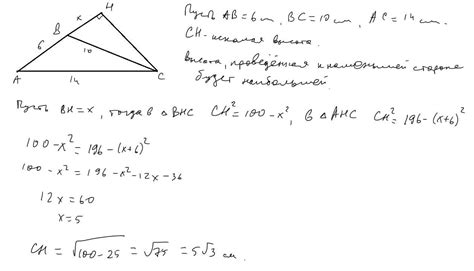 H
x
B
6
10
A
14
C
Пусть AB = 6 см, BC = 10 см, AC = 14 см.
CH - искомая высота.
Высота, проведённая к наименьшей стороне
будет наибольшей.
Пусть BH = x, тогда в △BHC CH² = 100 - x², в △AHC CH² = 196 - (x+6)²
100 - x² = 196 - (x+6)²
100 - x² = 196 - x² - 12x - 36
12x = 60
x = 5
CH = √100 - 25 = √75 = 5√3 см.